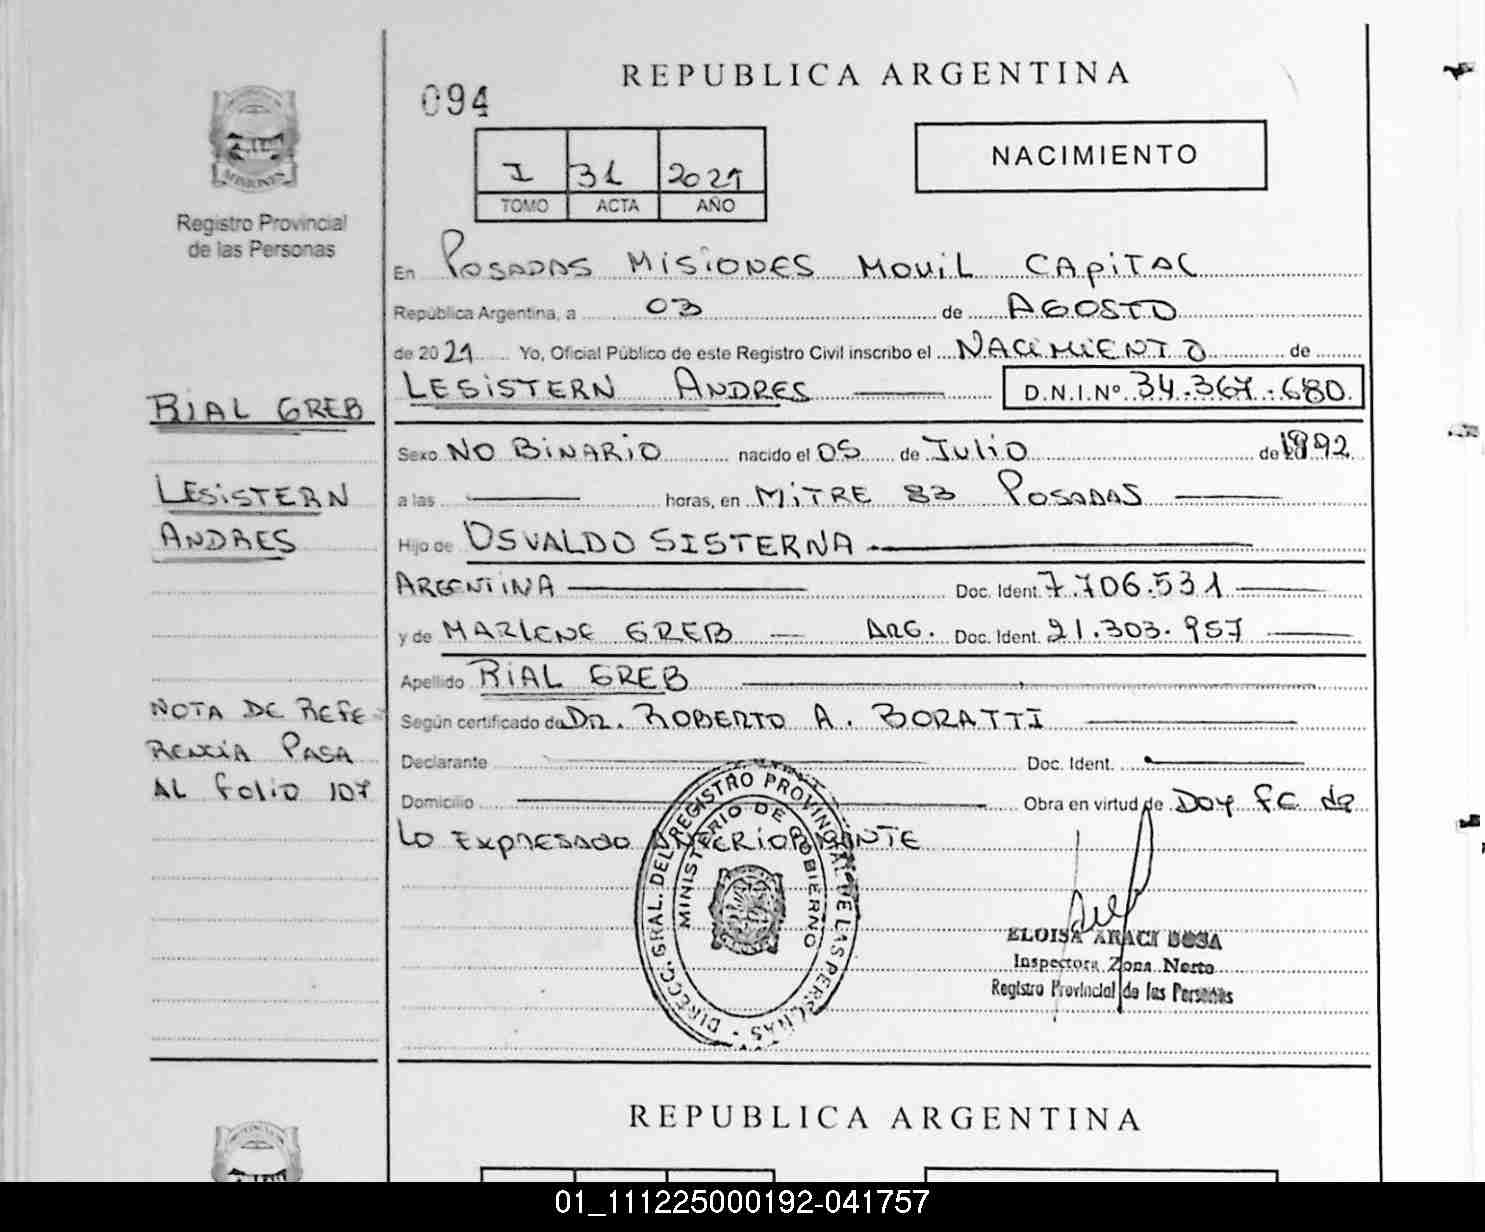 REPUBLICA ARGENTINA
094
NACIMIENTO
I 31 2021
TOMO ACTA AÑO
MISIONES
Registro Provincial
de las Personas
En POSADAS MISIONES MOVIL CAPITAL
República Argentina, a 03 de AGOSTO
de 2021 Yo, Oficial Público de este Registro Civil inscribo el NACIMIENTO de
LESISTERN ANDRES D.N.I.Nº 34.367.680
RIAL GREB
LESISTERN
ANDRES
Sexo NO BINARIO nacido el 05 de JULIO de 1992
a las horas, en MITRE 83 POSADAS
Hijo de OSVALDO SISTERNA
ARGENTINA Doc. Ident. 7.706.531
y de MARLENE GREB ARG. Doc. Ident. 21.303.957
Apellido RIAL GREB
NOTA DE REFE
RENCIA PASA
AL FOLIO 107
Según certificado de DR. ROBERTO A. BORATTI
Declarante Doc. Ident.
Domicilio Obra en virtud de DOY FE de
LO EXPRESADO ANTERIORMENTE
DIRECC. GRAL. DEL REGISTRO PROVINCIAL DE LAS PERSONAS
MINISTERIO DE GOBIERNO
ELOISA ARACI SOSA
Inspectora Zona Norte
Registro Provincial de las Personas
REPUBLICA ARGENTINA
01_111225000192-041757